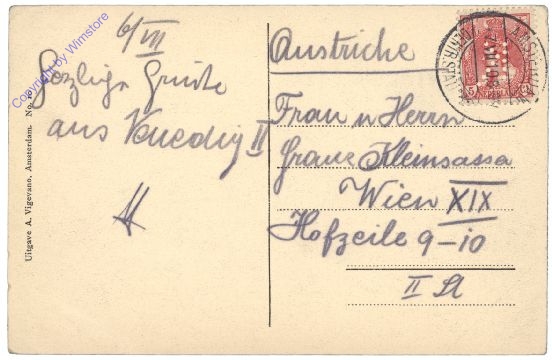 6/VII
Herzliche Grüße
aus Venedig II
Copyright by Wimstore
Uitgave A. Vigevano, Amsterdam. No.
Austriche
Frau u Herrn
Franz Kleinsasser
Wien XIX
Hofzeile 9-10
II St